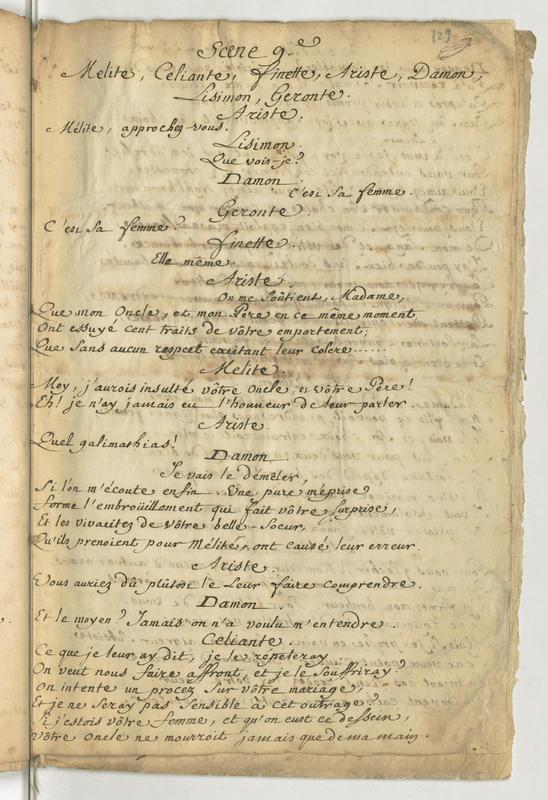 129
Scene 9.e
Melite, Celiante, finette, Ariste, Damon,
Lisimon, Geronte.
Ariste.
Mélite, approchez-vous.
Lisimon.
Que vois-je?
Damon.
C'est sa femme.
Geronte.
C'est sa femme?
finette.
Elle même.
Ariste.
On me soûtient, Madame,
Que mon Oncle, et mon Pere en ce même moment
Ont essuyé cent traits de vôtre emportement;
Que sans aucun respect excitant leur colere......
Melite.
Moy, j'aurois insulté vôtre Oncle, et vôtre Pere!
Eh! je n'ay jamais eu l'honneur de leur parler
Ariste.
Quel galimathias!
Damon.
Je vais le démêler,
Si l'on m'écoute enfin. Une pure méprise
forme l'embroüillament qui fait vôtre surprise,
Et les vivacitez de vôtre belle-Soeur,
Qu'ils prenoient pour Mélité, ont causé leur erreur.
Ariste.
Vous auriez dû plûtost le leur faire comprendre.
Damon
Et le moyen? Jamais on n'a voulu m'entendre.
Celiante.
Ce que je leur ay dit, je le répeteray.
On veut nous faire affront, et je le souffriray?
On intente un procez sur vôtre mariage,
Et je ne seray pas sensible à cet outrage?
Si j'estois vôtre femme, et qu'on eust ce dessein,
Vôtre Oncle ne mourroit jamais que de ma main.